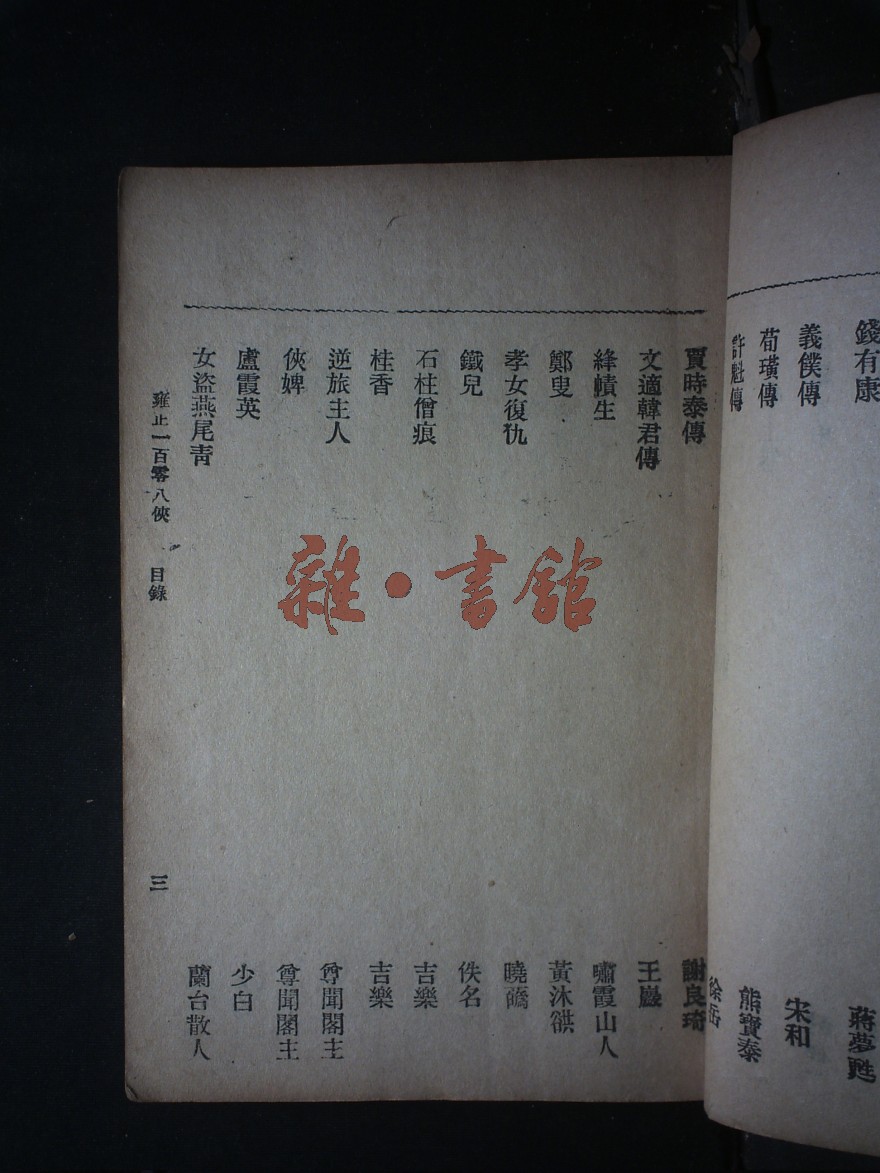 錢有康 蔣夢甦
義僕傳 宋和
荀璜傳 熊寶泰
許魁傳 徐岳
賈時泰傳 謝良琦
文適韓君傳 王巖
絳幘生 嘯霞山人
鄭叟 黃沐
孝女復仇 曉
鐵兒 佚名
石柱僧痕 吉樂
桂香 吉樂
逆旅主人 尊聞閣主
俠婢 尊聞閣主
盧霞英 少白
女盜燕尾青 蘭台散人
雍正一百零八俠 目錄 三
雜·書館